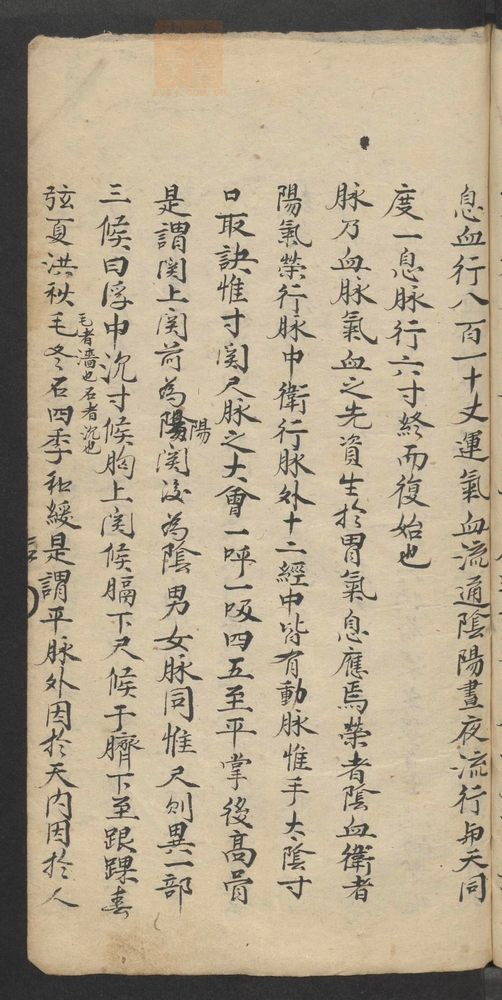 息血行八百一十丈運氣血流通陰陽晝夜流行與天同
度一息脉行六寸終而復始也
脉乃血脉氣血之先資生於胃氣息應焉榮者陰血衛者
陽氣榮行脉中衛行脉外十二經中皆有動脉惟手太陰寸
口取訣惟寸関尺脉之大會一呼一吸四五至平掌後髙骨
是謂関上関前為陽関後為陰男女脉同惟尺則異一部
陽
三候曰浮中沉寸候胸上関候膈下尺候于臍下至跟踝春
弦夏洪秋毛冬石四季和緩是謂平脉外因於天内因於人
毛者濇也石者沉也